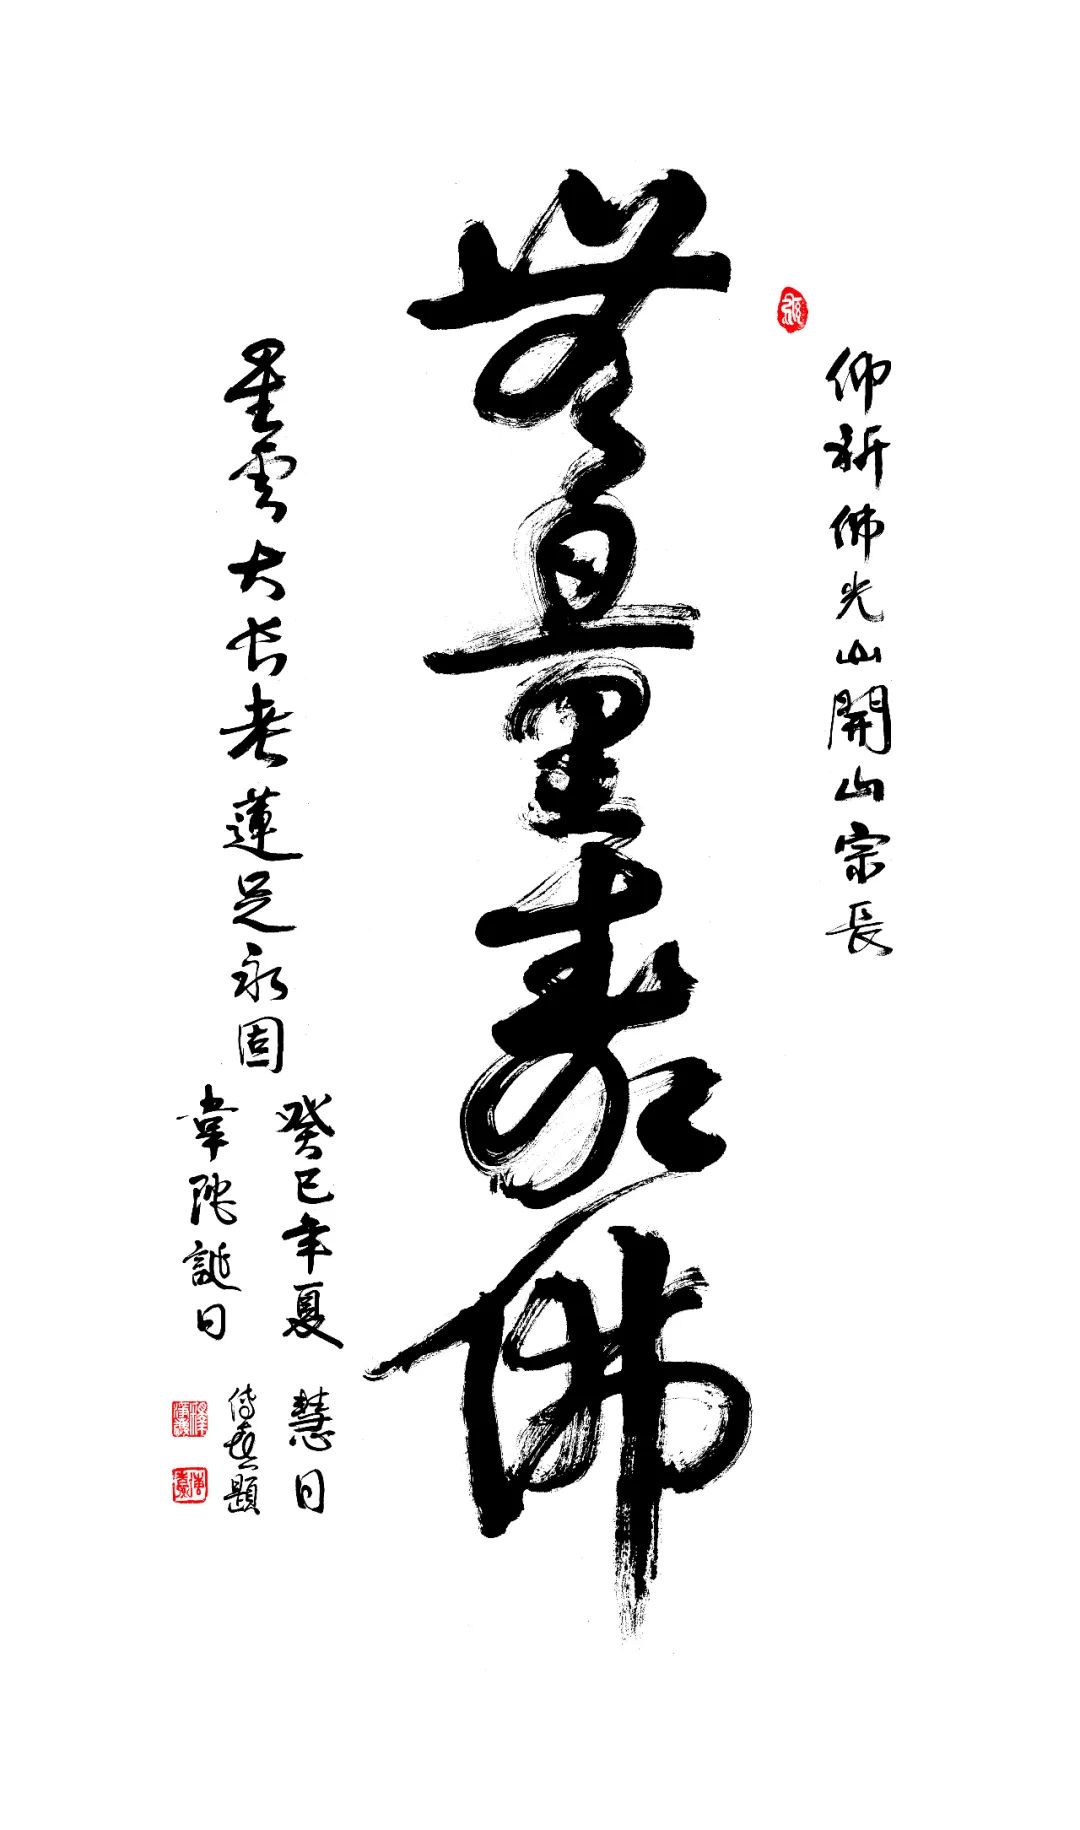 仰祈佛光山開山宗長
無量壽佛
星雲大长老蓮足永固
癸巳年夏 慧日
韋陀誕日
傳喜題